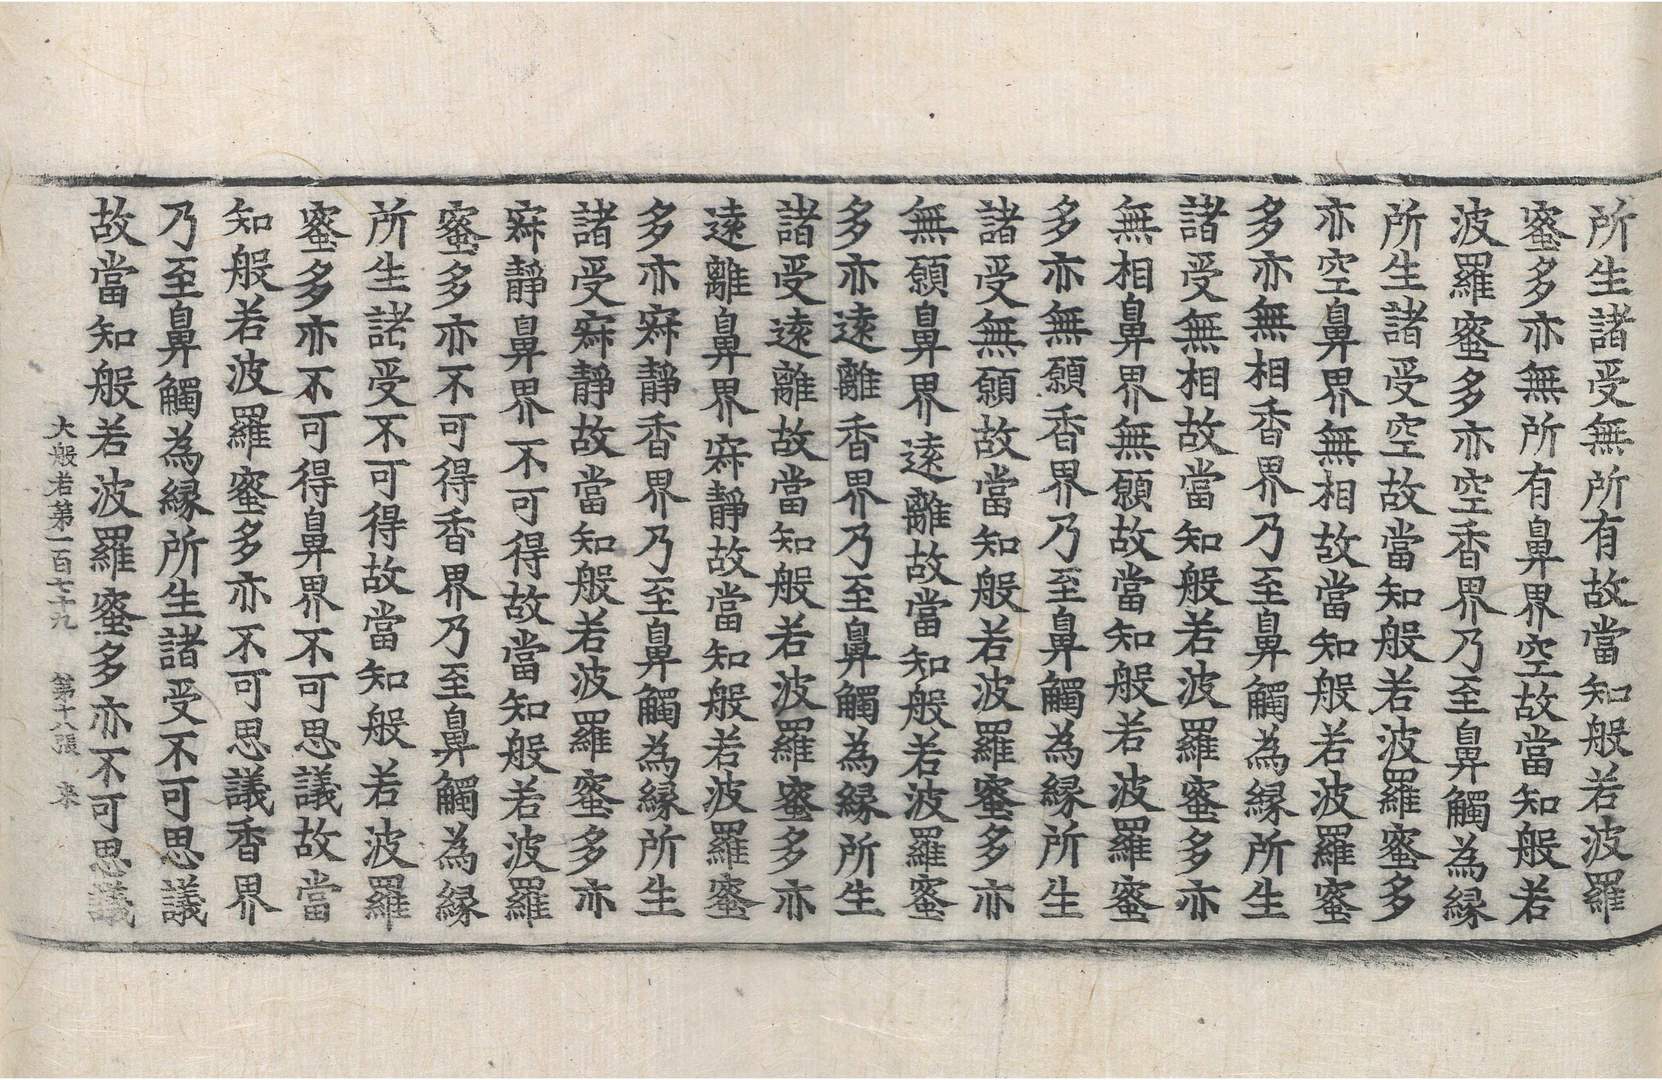 所生諸受無所有故當知般若波羅
蜜多亦無所有鼻界空故當知般若
波羅蜜多亦空香界乃至鼻觸為縁
所生諸受空故當知般若波羅蜜多
亦空鼻界無相故當知般若波羅蜜
多亦無相香界乃至鼻觸為縁所生
諸受無相故當知般若波羅蜜多亦
無相鼻界無願故當知般若波羅蜜
多亦無願香界乃至鼻觸為縁所生
諸受無願故當知般若波羅蜜多亦
無願鼻界遠離故當知般若波羅蜜
多亦遠離香界乃至鼻觸為縁所生
諸受遠離故當知般若波羅蜜多亦
遠離鼻界寂靜故當知般若波羅蜜
多亦寂靜香界乃至鼻觸為縁所生
諸受寂靜故當知般若波羅蜜多亦
寂靜鼻界不可得故當知般若波羅
蜜多亦不可得香界乃至鼻觸為縁
所生諸受不可得故當知般若波羅
蜜多亦不可得鼻界不可思議故當
知般若波羅蜜多亦不可思議香界
乃至鼻觸為縁所生諸受不可思議
故當知般若波羅蜜多亦不可思議
大般若第一百七十九 第十八張 来